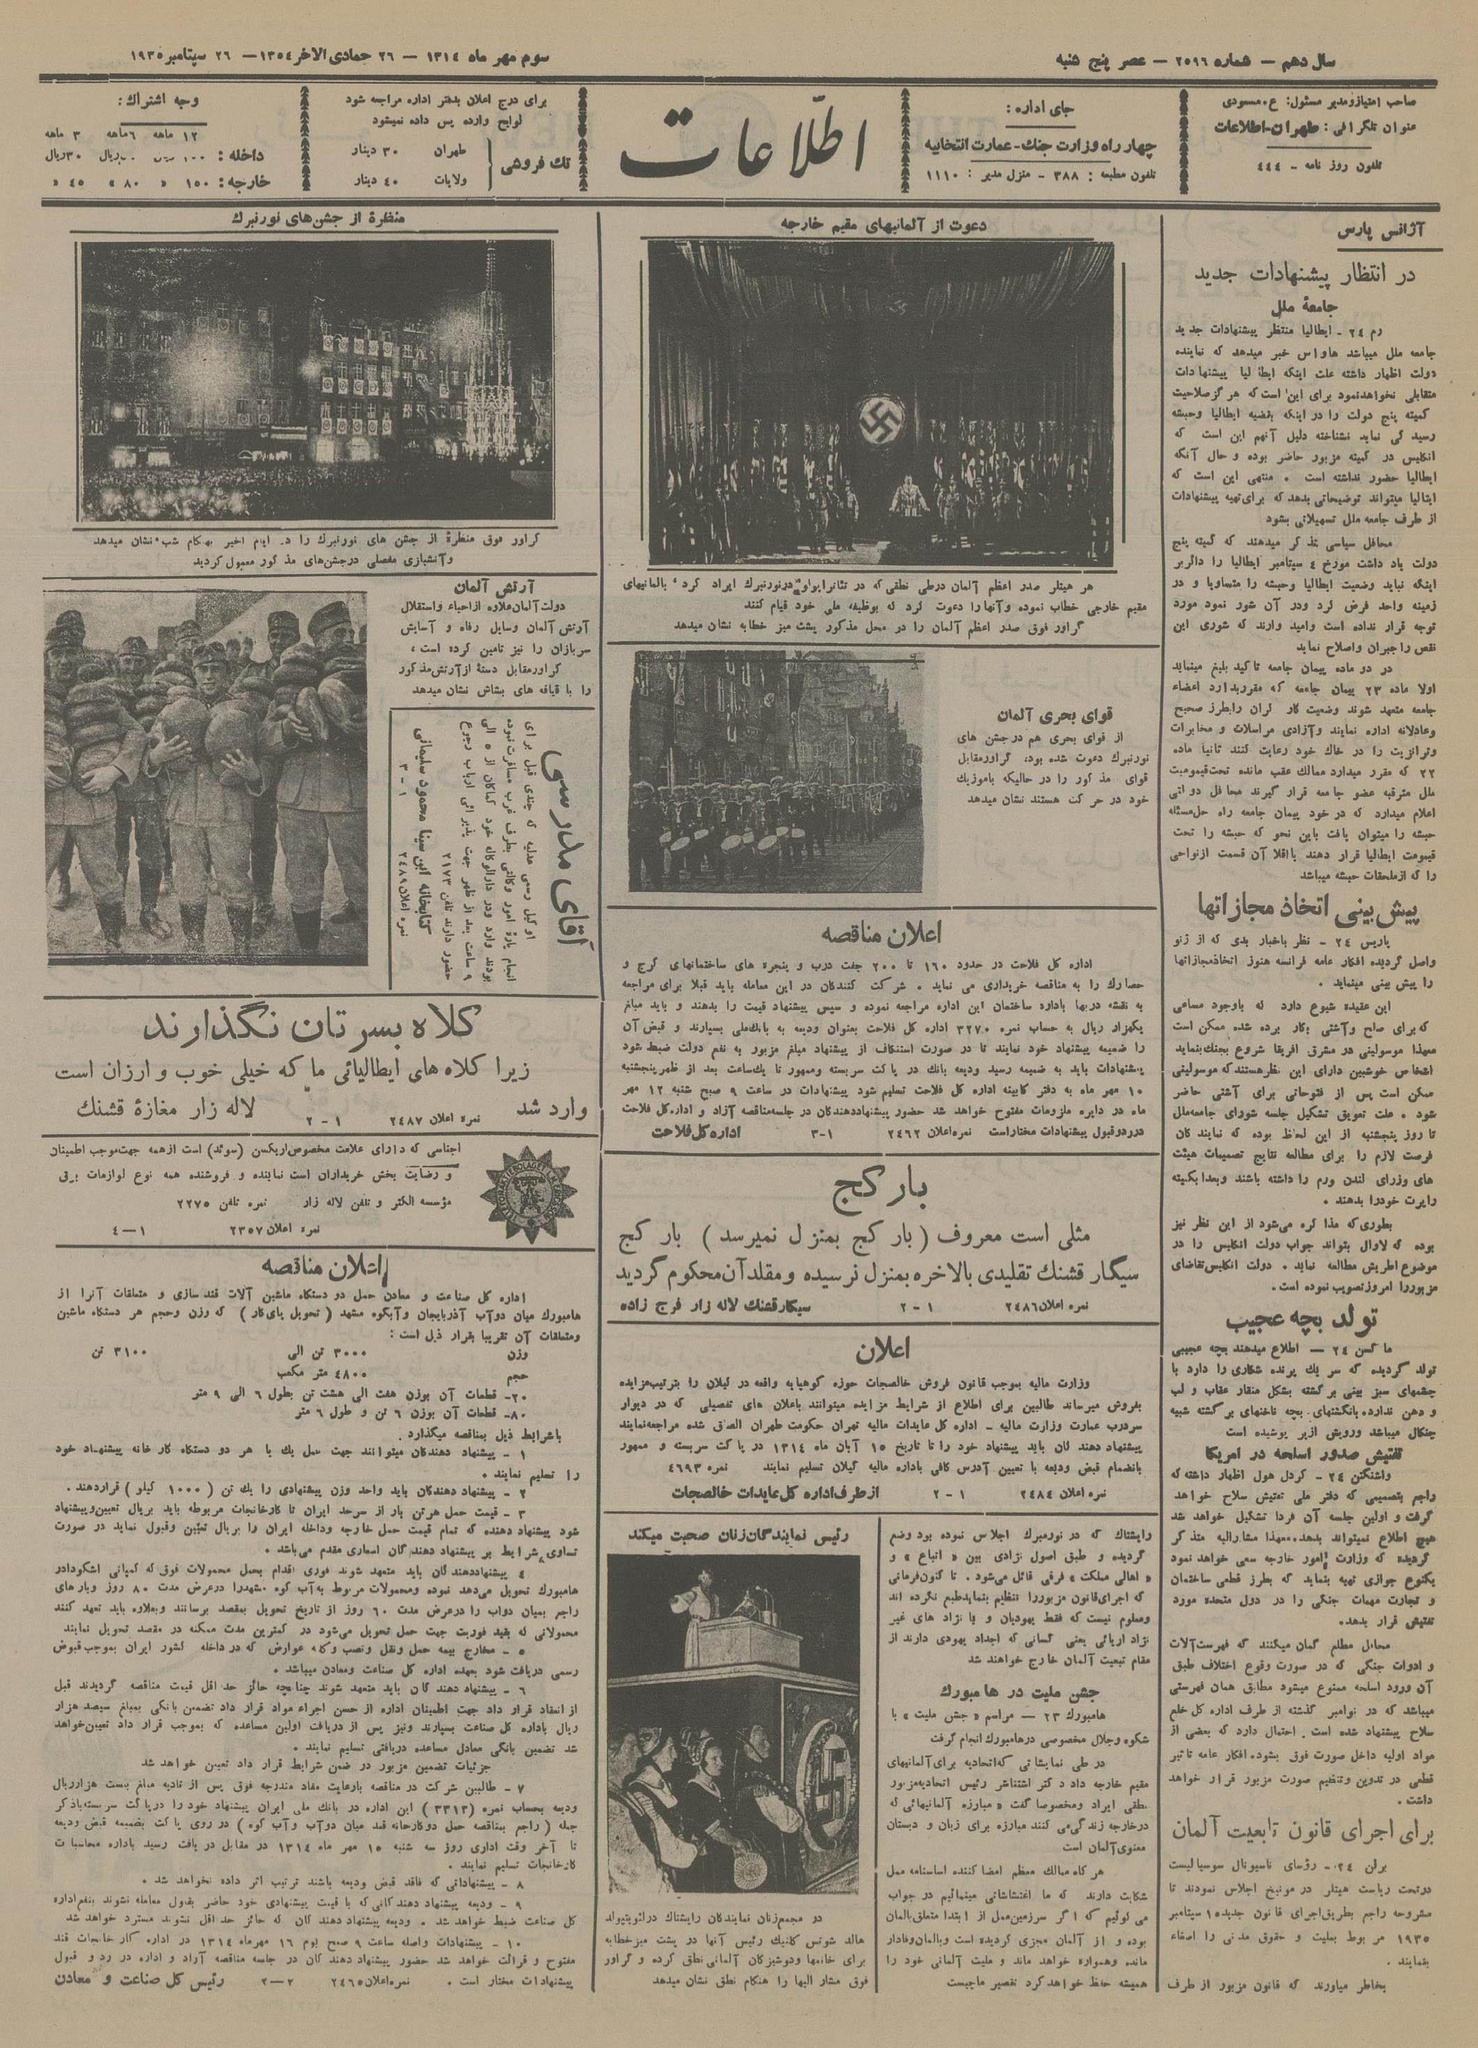 سال دهم — شماره ۲۵۹۶ — عصر پنج شنبه
سوم مهر ماه ۱۳۱۴ — ۲۶ جمادی الاخر ۱۳۵۴ — ۲۶ سپتامبر ۱۹۳۵
صاحب امتیاز و مدیر مسئول: ع. مسعودی
عنوان تلگرافی: طهران-اطلاعات
تلفون روز نامه - ۴۴۴
جای اداره:
چهار راه وزارت جنك-عمارت انتخابیه
تلفون مطبعه: ۳۸۸ - منزل مدیر: ۱۱۱۰
اطلاعات
برای درج اعلان بدفتر اداره مراجعه شود
لوایح وارده پس داده نمیشود
تك فروشی
طهران ۳۰ دینار
ولایات ۴۰ دینار
وجه اشتراك:
۱۲ ماهه ۶ ماهه ۳ ماهه
داخله: ۱۰۰ ریال ۳۰ریال
خارجه: ۱۵۰ « ۸۰ » ۴۵ «
آژانس پارس
در انتظار پیشنهادات جدید
جامعهٔ ملل
رم ۲۴ - ایطالیا منتظر پیشنهادات جدید
جامعه ملل میباشد هاواس خبر میدهد که نماینده
دولت اظهار داشته علت اینکه ایطالیا پیشنهادات
متقابلی نخواهدنمود برای این است که هرگز صلاحیت
کمیته پنج دولت را در اینکه بقضیه ایطالیا وحبشه
رسیدگی نماید نشناخته دلیل آنهم این است که
انگلیس در کمیته مزبور حاضر بوده و حال آنکه
ایطالیا حضور نداشته است . منتهی این است که
ایتالیا میتواند توضیحاتی بدهد که برای تهیه پیشنهادات
از طرف جامعه ملل تسهیلاتی بشود
محافل سیاسی تذکر میدهند که کمیته پنج
دولت یاد داشت مورخ ۴ سپتامبر ایطالیا را دائر بر
اینکه نباید وضعیت ایطالیا وحبشه را متساویا و در
زمینه واحد فرض کرد ودر آن شور نمود مورد
توجه قرار نداده است وامید وارند که شورای این
نقص را جبران واصلاح نماید
در دو ماده پیمان جامعه تاکید بلیغ مینماید
اولا ماده ۲۳ پیمان جامعه که مقرر میدارد اعضاء
جامعه متعهد شوند وضعیت کار گران را بطرز صحیح
وعادلانه اداره نمایند وآزادی مراسلات و مخابرات
وترانزیت را در خاك خود رعایت کنند ثانیا ماده
۲۲ که مقرر میدارد ممالك عقب مانده تحت قیمومیت
ملل مترقیه عضو جامعه قرار گیرند محافل دولتی
اعلام میدارد که در خود پیمان جامعه راه حل مسئله
حبشه را میتوان یافت باین نحو که حبشه را تحت
قیمومت ایطالیا قرار دهند یا اقلا آن قسمت از نواحی
را که از ملحقات حبشه میباشد
پیش بینی اتخاذ مجازاتها
پاریس ۲۴ - نظر باخبار بدی که از ژنو
واصل گردیده افکار عامه فرانسه هنوز اتخاذ مجازاتها
را پیش بینی مینماید .
این عقیده شیوع دارد که باوجود مساعی
که برای صلح وآشتی بکار برده شده ممکن است
معهذا موسولینی در مشرق افریقا شروع بجنك بنماید
اشخاص خوشبین دارای این نظر هستند که موسولینی
ممکن است پس از فتوحاتی برای آشتی حاضر
شود . علت تعویق تشکیل جلسه شورای جامعه ملل
تا روز پنجشنبه از این لحاظ بوده که نمایندگان
فرصت لازم را برای مطالعه نتایج تصمیمات هیئت
های وزرای لندن ورم را داشته باشند وبعدا بکمیته
راپرت خودرا بدهند .
بطوری که مذاکره می‌شود از این نظر نیز
بوده که لاوال بتواند جواب دولت انگلیس را در
موضوع اطریش مطالعه نماید . دولت انگلیس تقاضای
مزبور را امروز تصویب نموده است .
تولد بچه عجیب
ماکسن ۲۴ — اطلاع میدهند بچه عجیبی
تولد گردیده که سر یك پرنده شکاری را دارد با
چشمهای سبز بینی برگشته بشکل منقار عقاب و لب
و دهن ندارد. بانگشتهای بچه ناخنهای برگشته شبیه
چنگال میباشد ورویش از پر پوشیده است
تفتیش صدور اسلحه در امریکا
واشنگتن ۲۴ - کردل هول اظهار داشته که
راجع بتصمیمی که دفتر ملی تفتیش سلاح خواهد
گرفت و اولین جلسه آن فردا تشکیل خواهد شد
هیچ اطلاع نمیتواند بدهد. معهذا مشارالیه متذکر
گردیده که وزارت امور خارجه سعی خواهد نمود
یکنوع جوازی تهیه بنماید که بطرز قطعی ساختمان
و تجارت مهمات جنگی را در دول متحده مورد
تفتیش قرار بدهد.
محافل مطلع گمان میکنند که فهرست آلات
و ادوات جنگی که در صورت وقوع اختلاف طبق
آن ورود اسلحه ممنوع میشود مطابق همان فهرستی
میباشد که در نوامبر گذشته از طرف اداره کل خلع
سلاح پیشنهاد شده است . احتمال دارد که بعضی از
مواد اولیه داخل صورت فوق بشود. افکار عامه تاثیر
قطعی در تدوین وتنظیم صورت مزبور قرار خواهد
داشت .
برای اجرای قانون تابعیت آلمان
برلن ۲۴ - رؤسای ناسیونال سوسیالیست
در تحت ریاست هیتلر در مونیخ اجلاس نمودند تا
مشروحه راجع بطریق اجرای قانون جدید ۱۵ سپتامبر
۱۹۳۵ مربوط بملیت و حقوق مدنی را اصغاء
بنمایند .
بخاطر میاورند که قانون مزبور از طرف
دعوت از آلمانیهای مقیم خارجه
هر هیتلر صدر اعظم آلمان درطی نطقی که در تئاتر اپولو درنورنبرك ایراد کرد بالمانیهای
مقیم خارجی خطاب نموده وآنها را دعوت کرد که بوظیفه ملی خود قیام کنند
گراور فوق صدر اعظم آلمان را در محل مذکور پشت میز خطابه نشان میدهد
قوای بحری آلمان
از قوای بحری هم در جشن های
نورنبرك دعوت شده بود، گراور مقابل
قوای مذکور را در حالیکه باموزیك
خود در حرکت هستند نشان میدهد
اعلان مناقصه
اداره کل فلاحت در حدود ۱۶۰ تا ۲۰۰ جفت درب و پنجره های ساختمانهای کرج و
حصارك را به مناقصه خریداری می نماید . شرکت کنندگان در این معامله باید قبلا برای مراجعه
به نقشه دربها باداره ساختمان این اداره مراجعه نموده و سپس پیشنهاد قیمت را بدهند و باید مبلغ
یکهزار ریال به حساب نمره ۳۲۷۰ اداره کل فلاحت بعنوان ودیعه به بانك ملی بسپارند و قبض آن
را ضمیمه پیشنهاد خود نمایند تا در صورت استنکاف از پیشنهاد مبلغ مزبور به نفع دولت ضبط شود
پشنهادات باید به ضمیمه رسید ودیعه بانك در پاکت سربسته وممهور تا یك ساعت بعد از ظهر پنجشنبه
۱۰ مهر ماه به دفتر کابینه اداره کل فلاحت تسلیم شود پیشنهادات در ساعت ۹ صبح شنبه ۱۲ مهر
ماه در دایره ملزومات مفتوح خواهد شد حضور پیشنهاددهندگان در جلسه مناقصه آزاد و اداره کل فلاحت
دررد و قبول پیشنهادات مختار است نمره اعلان ۲۴۶۲ ۱-۳ اداره کل فلاحت
بار کج
مثلی است معروف ( بار کج بمنزل نمیرسد ) بار کج
سیگار قشنك تقلیدی بالاخره بمنزل نرسیده و مقلد آن محکوم گردید
نمره اعلان ۲۴۸۶ ۱-۲ سیگار قشنك لاله زار فرج زاده
اعلان
وزارت مالیه بموجب قانون فروش خالصجات حوزه کوهپایه واقعه در گیلان را بترتیب مزایده
بفروش میرساند طالبین برای اطلاع از شرایط مزایده میتوانند باعلان های تفصیلی که در دیوار
سردرب عمارت وزارت مالیه - اداره کل عایدات مالیه تهران حکومت طهران الصاق شده مراجعه نمایند
پیشنهاد دهندگان باید پیشنهاد خود را تا تاریخ ۱۵ آبان ماه ۱۳۱۴ در پاکت سربسته و ممهور
بانضمام قبض ودیعه با تعیین آدرس کافی باداره مالیه گیلان تسلیم نمایند نمره ۴۶۹۳
نمره اعلان ۲۴۸۴ ۱-۲ از طرف اداره کل عایدات خالصجات
رایشتاك که در نورمبرك اجلاس نموده بود وضع
گردیده و طبق اصول نژادی بین « اتباع » و
« اهالی مملکت » فرقی قائل می‌شود . تا کنون فرمانی
که اجرای قانون مزبور را تنظیم بنماید طبع نکرده اند
ومعلوم نیست که فقط یهودیان و یا نژاد های غیر
نژاد اریائی یعنی کسانی که اجداد یهودی دارند از
مقام تبعیت آلمان خارج خواهند شد
جشن ملیت در هامبورك
هامبورك ۲۳ — مراسم « جشن ملیت » با
شکوه وجلال مخصوصی درهامبورك انجام گرفت
در طی نمایشاتی که اتحادیه برای آلمانیهای
مقیم خارجه داد دکتر اشتناشر رئیس اتحادیه مزبور
نطقی ایراد ومخصوصا گفت « مبارزه آلمانیهائی که
درخارجه زندگی می کنند مبارزه برای زبان و دبستان
معنوی آلمان است
هر گاه ممالك معظم امضا کننده اساسنامه ممل
شکایت دارند که ما اغتشاشاتی مینمائیم در جواب
می گوئیم که اگر سرزمین ممل از ابتدا متعلق بالمان
بوده و از آلمان مجزی گردیده است وبالمان وفادار
مانده وهمواره خواهد ماند و ملیت آلمانی خود را
همیشه حفظ خواهد کرد تقصیر ما چیست
رئیس نمایندگان زنان صحبت میکند
در مجمع زنان نمایندگان رایشتاك
هالد شوتس کلنیك رئیس آنها در پشت میز خطابه
برای خانمها ودوشیزگان آلمانی نطق کرده و گراور
فوق مشار الیها را هنگام نطق نشان میدهد
منظرهٔ از جشن های نورنبرك
گراور فوق منظرهٔ از جشن های نورنبرك را در ایام اخیر بهنگام شب نشان میدهد
وآتشبازی مفصلی درجشن‌های مذکور معمول گردید
آرتش آلمان
دولت آلمان علاوه از احیاء واستقلال
آرتش آلمان وسایل رفاه و آسایش
سربازان را نیز تامین کرده است،
گراور مقابل دستهٔ از آرتش مذکور
را با قیافه های بشاش نشان میدهد
آقای مدرسی
وکیل رسمی عدلیه که چندی قبل برای
انجام پارهٔ امور وکالتی بطرف غرب مسافرت نموده
بودند وارد ودر دارالوکاله خود کماکان از ۵ الی
۹ ساعت بعد از ظهر جهت پذیرائی ارباب رجوع
حضور دارند تلفن ۲۱۷۳
کتابخانه ابن سینا محمود سلیمانی
نمره اعلان ۲۴۸۹ ۱-۳
کلاه بسر تان نگذارند
زیرا کلاه های ایطالیائی ما که خیلی خوب و ارزان است
وارد شد نمره اعلان ۲۴۸۷ ۱-۲ لاله زار مغازهٔ قشنك
اجناسی که دارای علامت مخصوص اریکسن (سوئد) است از همه جهت موجب اطمینان
و رضایت بخش خریداران است نماینده و فروشنده همه نوع لوازمات برقی
مؤسسه الکتر و تلفن لاله زار نمره تلفن ۲۲۷۵
نمره اعلان ۲۳۵۷ ۱—۴
اعلان مناقصه
اداره کل صناعت و معادن حمل دو دستگاه ماشین آلات قند سازی و متعلقات آنرا از
هامبورك میان دوآب آذربایجان وآبکوه مشهد ( تحویل پای کار ) که وزن وحجم هر دستگاه ماشین
ومتعلقات آن تقریبا بقرار ذیل است :
وزن ۳۰۰۰ تن الی ۳۱۰۰ تن
حجم ۴۸۰۰ متر مکعب
۲۰- قطعات آن بوزن هفت الی هشت تن بطول ۶ الی ۹ متر
۸۰- قطعات آن بوزن ۶ تن و طول ۶ متر
باشرایط ذیل بمناقصه میگذارد .
۱ - پیشنهاد دهندگان میتوانند جهت حمل یك یا هر دو دستگاه کارخانه پیشنهاد خود
را تسلیم نمایند .
۲ - پیشنهاد دهندگان باید واحد وزن پیشنهادی را یك تن ( ۱۰۰۰ کیلو ) قراردهند .
۳ - قیمت حمل هرتن بار از سرحد ایران تا کارخانجات مربوطه باید بریال تعیین و پیشنهاد
شود پیشنهاد دهنده که تمام قیمت حمل خارجه وداخله ایران را بریال تعیین وقبول نماید در صورت
تساوی شرایط بر پیشنهاد دهندگان اسعاری مقدم می‌باشد .
۴ پیشنهاددهندگان باید متعهد شوند فوری اقدام بحمل محمولات فوق که کمپانی اشکودا در
هامبورك تحویل می‌دهد نموده ومحمولات مربوط به آب کوه مشهد را درعرض مدت ۸۰ روز وبارهای
راجع بمیان دواب را درعرض مدت ۶۰ روز از تاریخ تحویل بمقصد برسانند وبعلاوه باید تعهد کنند
محمولاتی که بقید فوریت جهت حمل تحویل می‌شود در کمترین مدت ممکنه در مقصد تحویل نمایند
۵ - مخارج بیمه حمل ونقل ونصب وکلیه عوارض که در داخله کشور ایران بموجب قبوض
رسمی دریافت شود بعهده اداره کل صناعت ومعادن میباشد .
۶ - پیشنهاد دهندگان باید متعهد شوند چنانچه حائز حد اقل قیمت مناقصه گردیدند قبل
از انعقاد قرار داد جهت اطمینان اداره از حسن اجراء مواد قرار داد تضمین بانکی بمبلغ سیصد هزار
ریال باداره کل صناعت بسپارند ونیز پس از دریافت اولین مساعده که بموجب قرار داد تعیین خواهد
شد تضمین بانکی معادل مساعده دریافتی تسلیم نمایند .
جزئیات تضمین مزبور در ضمن شرایط قرار داد تعیین خواهد شد
۷ - طالبین شرکت در مناقصه بارعایت مفاد مندرجه فوق پس از تادیه مبلغ بیست هزار ریال
ودیعه بحساب نمره (۳۳۱۳) این اداره در بانك ملی ایران پیشنهاد خود را در پاکت سربسته باذکر
جمله ( راجع بمناقصه حمل دو کارخانه قند میان دوآب وآب کوه ) در روی پاکت بضمیمه قبض ودیعه
تا آخر وقت اداری روز سه شنبه ۱۵ مهر ماه ۱۳۱۴ در مقابل دریافت رسید باداره محاسبات
کارخانجات تسلیم نمایند .
۸ - پیشنهاداتی که فاقد قبض ودیعه باشند ترتیب اثر داده نخواهد شد .
۹ - ودیعه پیشنهاد دهندگانی که با قیمت پیشنهادی خود حاضر بقبول معامله نشوند بنفع اداره
کل صناعت ضبط خواهد شد . ودیعه پیشنهاد دهندگان که حائز حد اقل نشوند مسترد خواهد شد
۱۰ - پیشنهادات واصله ساعت ۹ صبح یوم ۱۶ مهرماه ۱۳۱۴ در اداره کارخانجات قند
مفتوح و قرائت خواهد شد حضور پیشنهاد دهندگان در جلسه مناقصه آزاد و اداره در رد و قبول
پیشنهادات مختار است . نمره اعلان ۲۴۶۵ ۲—۲ رئیس کل صناعت و معادن